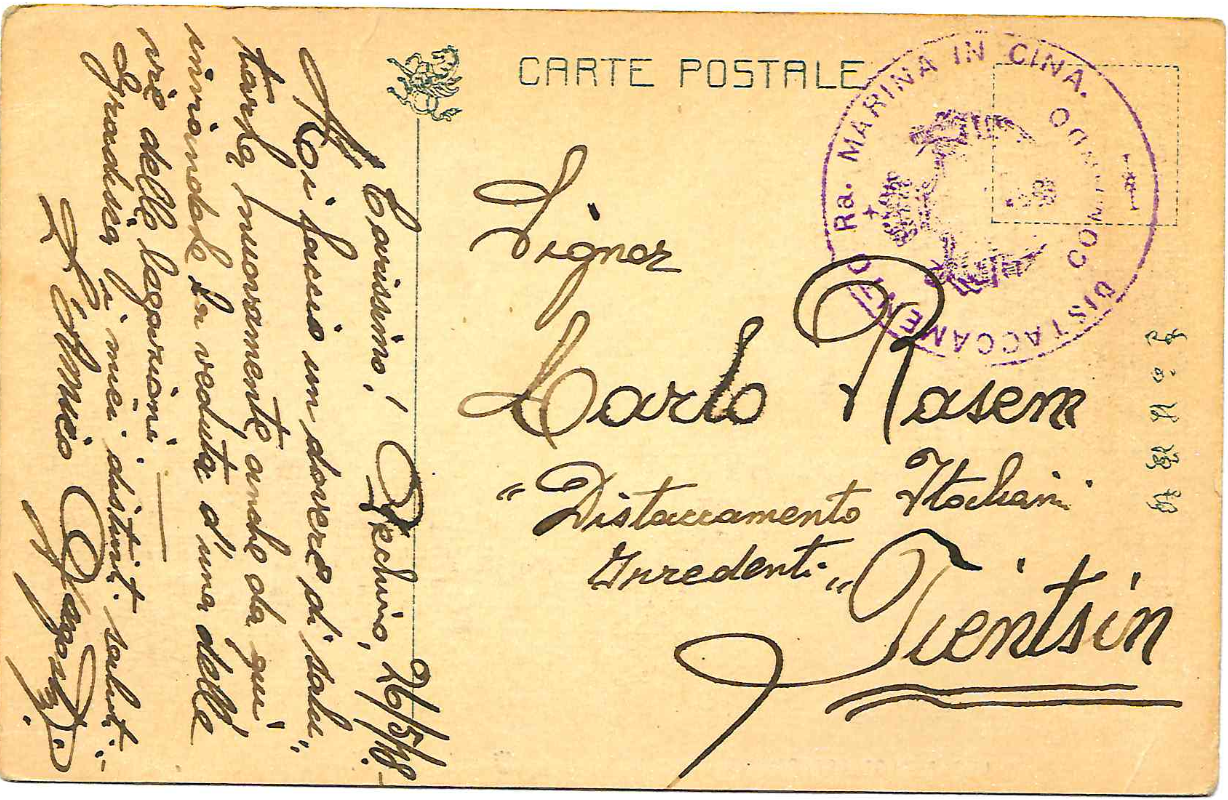 CARTE POSTALE
COMANDO DISTACCAMENTO Ra. MARINA IN CINA.
Signor
Carlo Rasem
"Distaccamento Italiani
Irredenti"
Tientsin
Pechino, 26/5/18-
Carissimo!
Mi faccio un dovere di salu„
tarla nuovamente anche da qui
inviandole la veduta d'una delle
vie delle legazioni.
Gradisca i miei distint. saluti
L'Amico